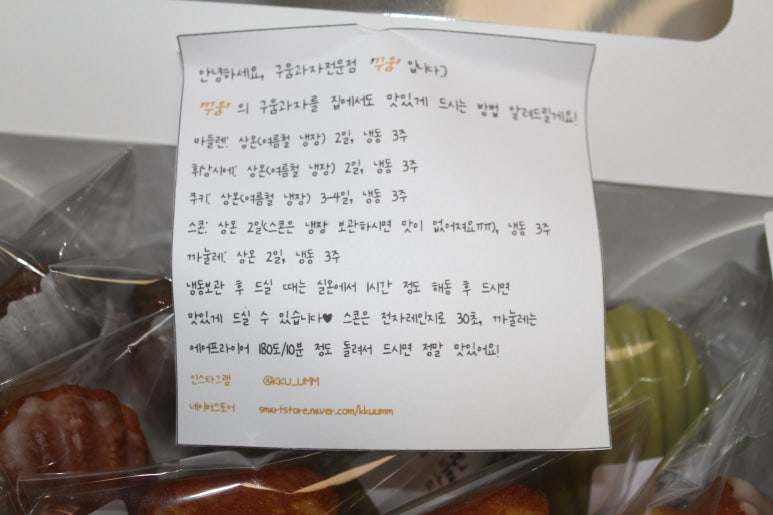 안녕하세요, 구움과자전문점 '꾸움' 입니다:)
'꾸움' 의 구움과자를 집에서도 맛있게 드시는 방법 알려드릴게요!
마들렌: 상온(여름철 냉장) 2일, 냉동 3주
휘낭시에: 상온(여름철 냉장) 2일, 냉동 3주
쿠키: 상온(여름철 냉장) 3-4일, 냉동 3주
스콘: 상온 2일(스콘은 냉장 보관하시면 맛이 없어져요ㅠㅠ), 냉동 3주
까눌레: 상온 2일, 냉동 3주
냉동보관 후 드실 때는 실온에서 1시간 정도 해동 후 드시면
맛있게 드실 수 있습니다♥ 스콘은 전자레인지로 30초, 까눌레는
에어프라이어 180도/10분 정도 돌려서 드시면 정말 맛있어요!
인스타그램 @KKU_UMM
네이버스토어 smartstore.naver.com/kkuumm
마들렌